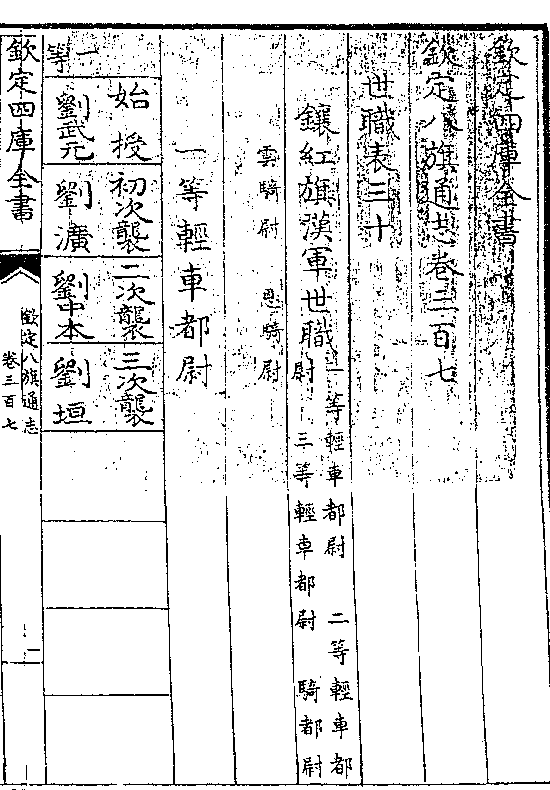 欽定四庫全書
欽定八旗通志卷三百七
世職表三十
鑲紅旗漢軍世職一等輕車都尉 二等輕車都
尉 三等輕車都尉 騎都尉
雲騎尉 恩騎尉
一等輕車都尉
始授 初次襲 二次襲 三次襲
一等 劉武元 劉灝 劉中本 劉垣
欽定四庫全書
欽定八旗通志
卷三百七
一